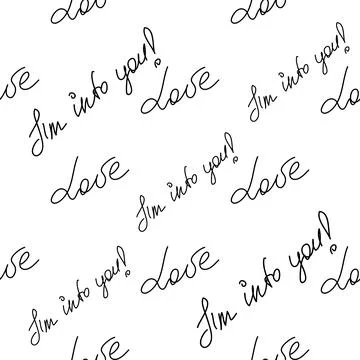 Love
Love
I'm into you!
I'm into you!
Love
Love
Love
Love
Love
I'm into you!
Love
Love
I'm into you!
I'm into you!
Love
Love